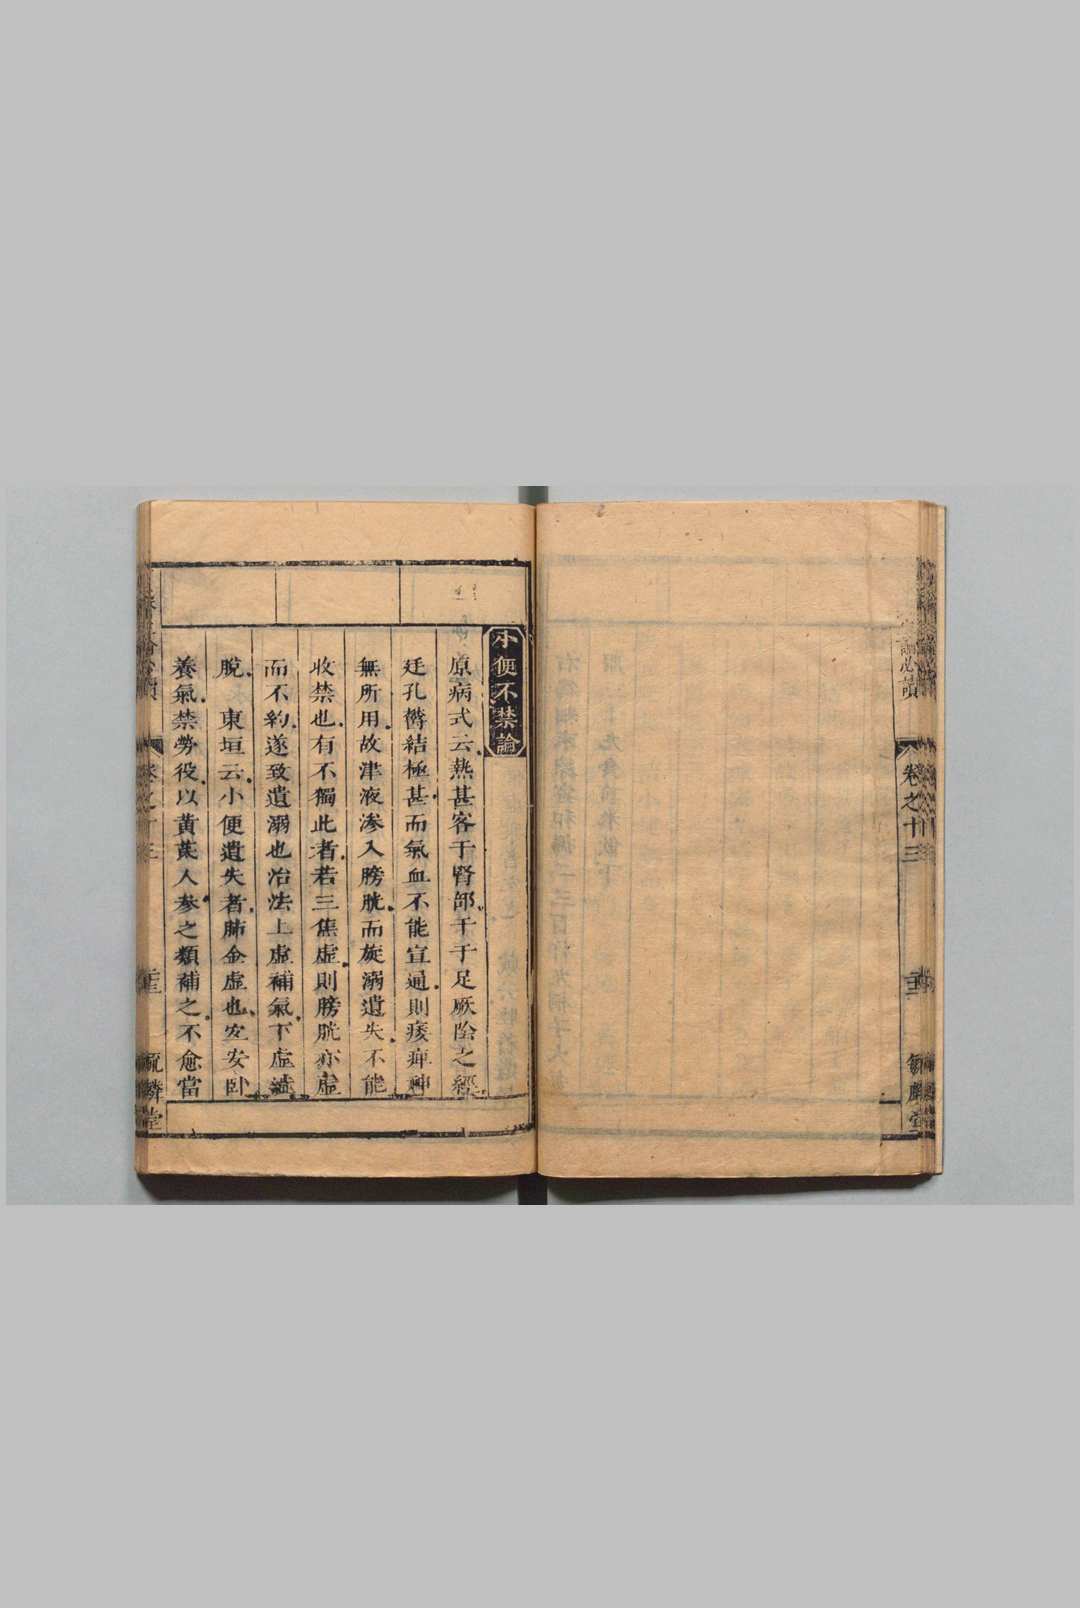 小便不禁論
原病式云熱甚客于腎部干于足厥陰之經
廷孔欝結極甚而氣血不能宣通則痿痺神
無所用故津液滲入膀胱而旋溺遺失不能
收禁也有不獨此者若三焦虛則膀胱亦虛
而不約遂致遺溺也治法上虛補氣下虛澁
脫 東垣云小便遺失者肺金虛也安卧
養氣禁勞役以黃芪人參之類補之不愈當
卷之十三
毓麟堂